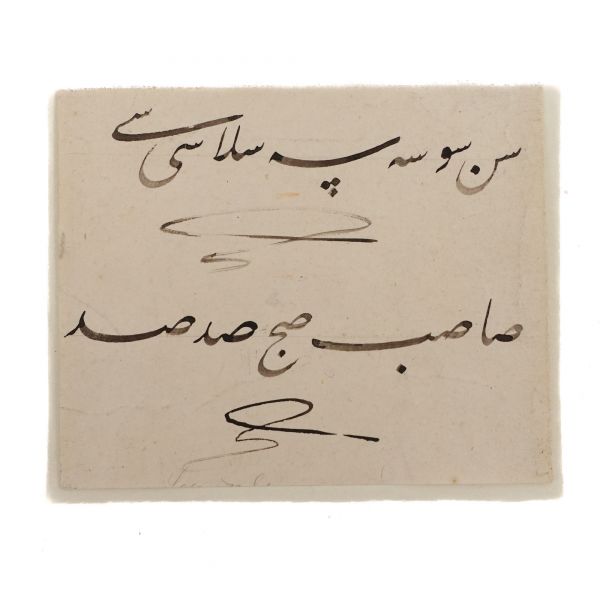 سن سو سه پسه سلا سی سے
صا صب صج صد صد